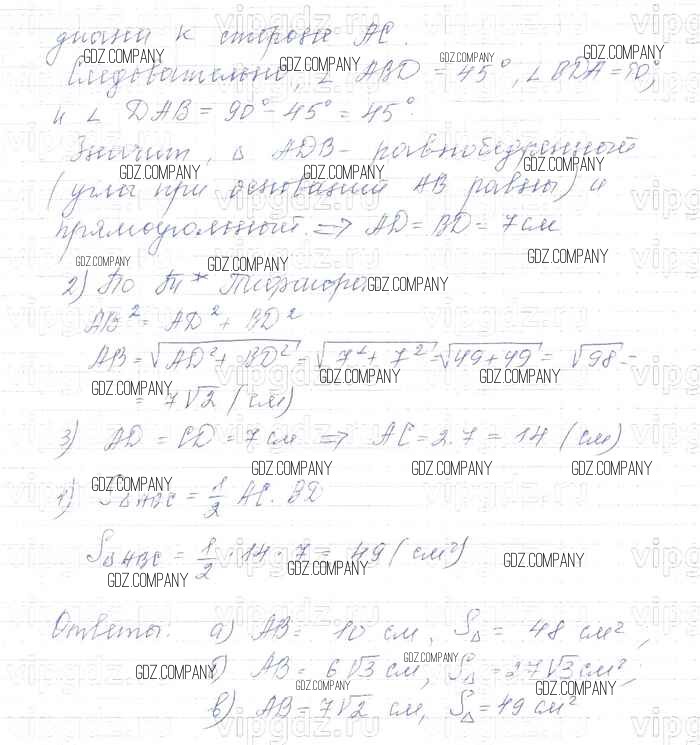 диани к стороне AC.
Следовательно, ∠ ABD = 45°, ∠ BDA = 90°,
и ∠ DAB = 90° - 45° = 45°.
Значит, △ ADB - равнобедренный
(углы при основании AB равны) и
прямоугольный. => AD = BD = 7 см
2) По Т. Пифагора
AB² = AD² + BD²
AB = √AD² + BD² = √7² + 7² = √49 + 49 = √98 =
= 7√2 (см)
3) AD = CD = 7 см => AC = 2·7 = 14 (см)
4) S△ABC = 1/2 AC · BD
S△ABC = 1/2 · 14 · 7 = 49 (см²)
Ответы: а) AB = 10 см, S△ = 48 см²,
б) AB = 6√3 см, S△ = 27√3 см²,
в) AB = 7√2 см, S△ = 49 см²
GDZ.COMPANY
vipgdz.ru